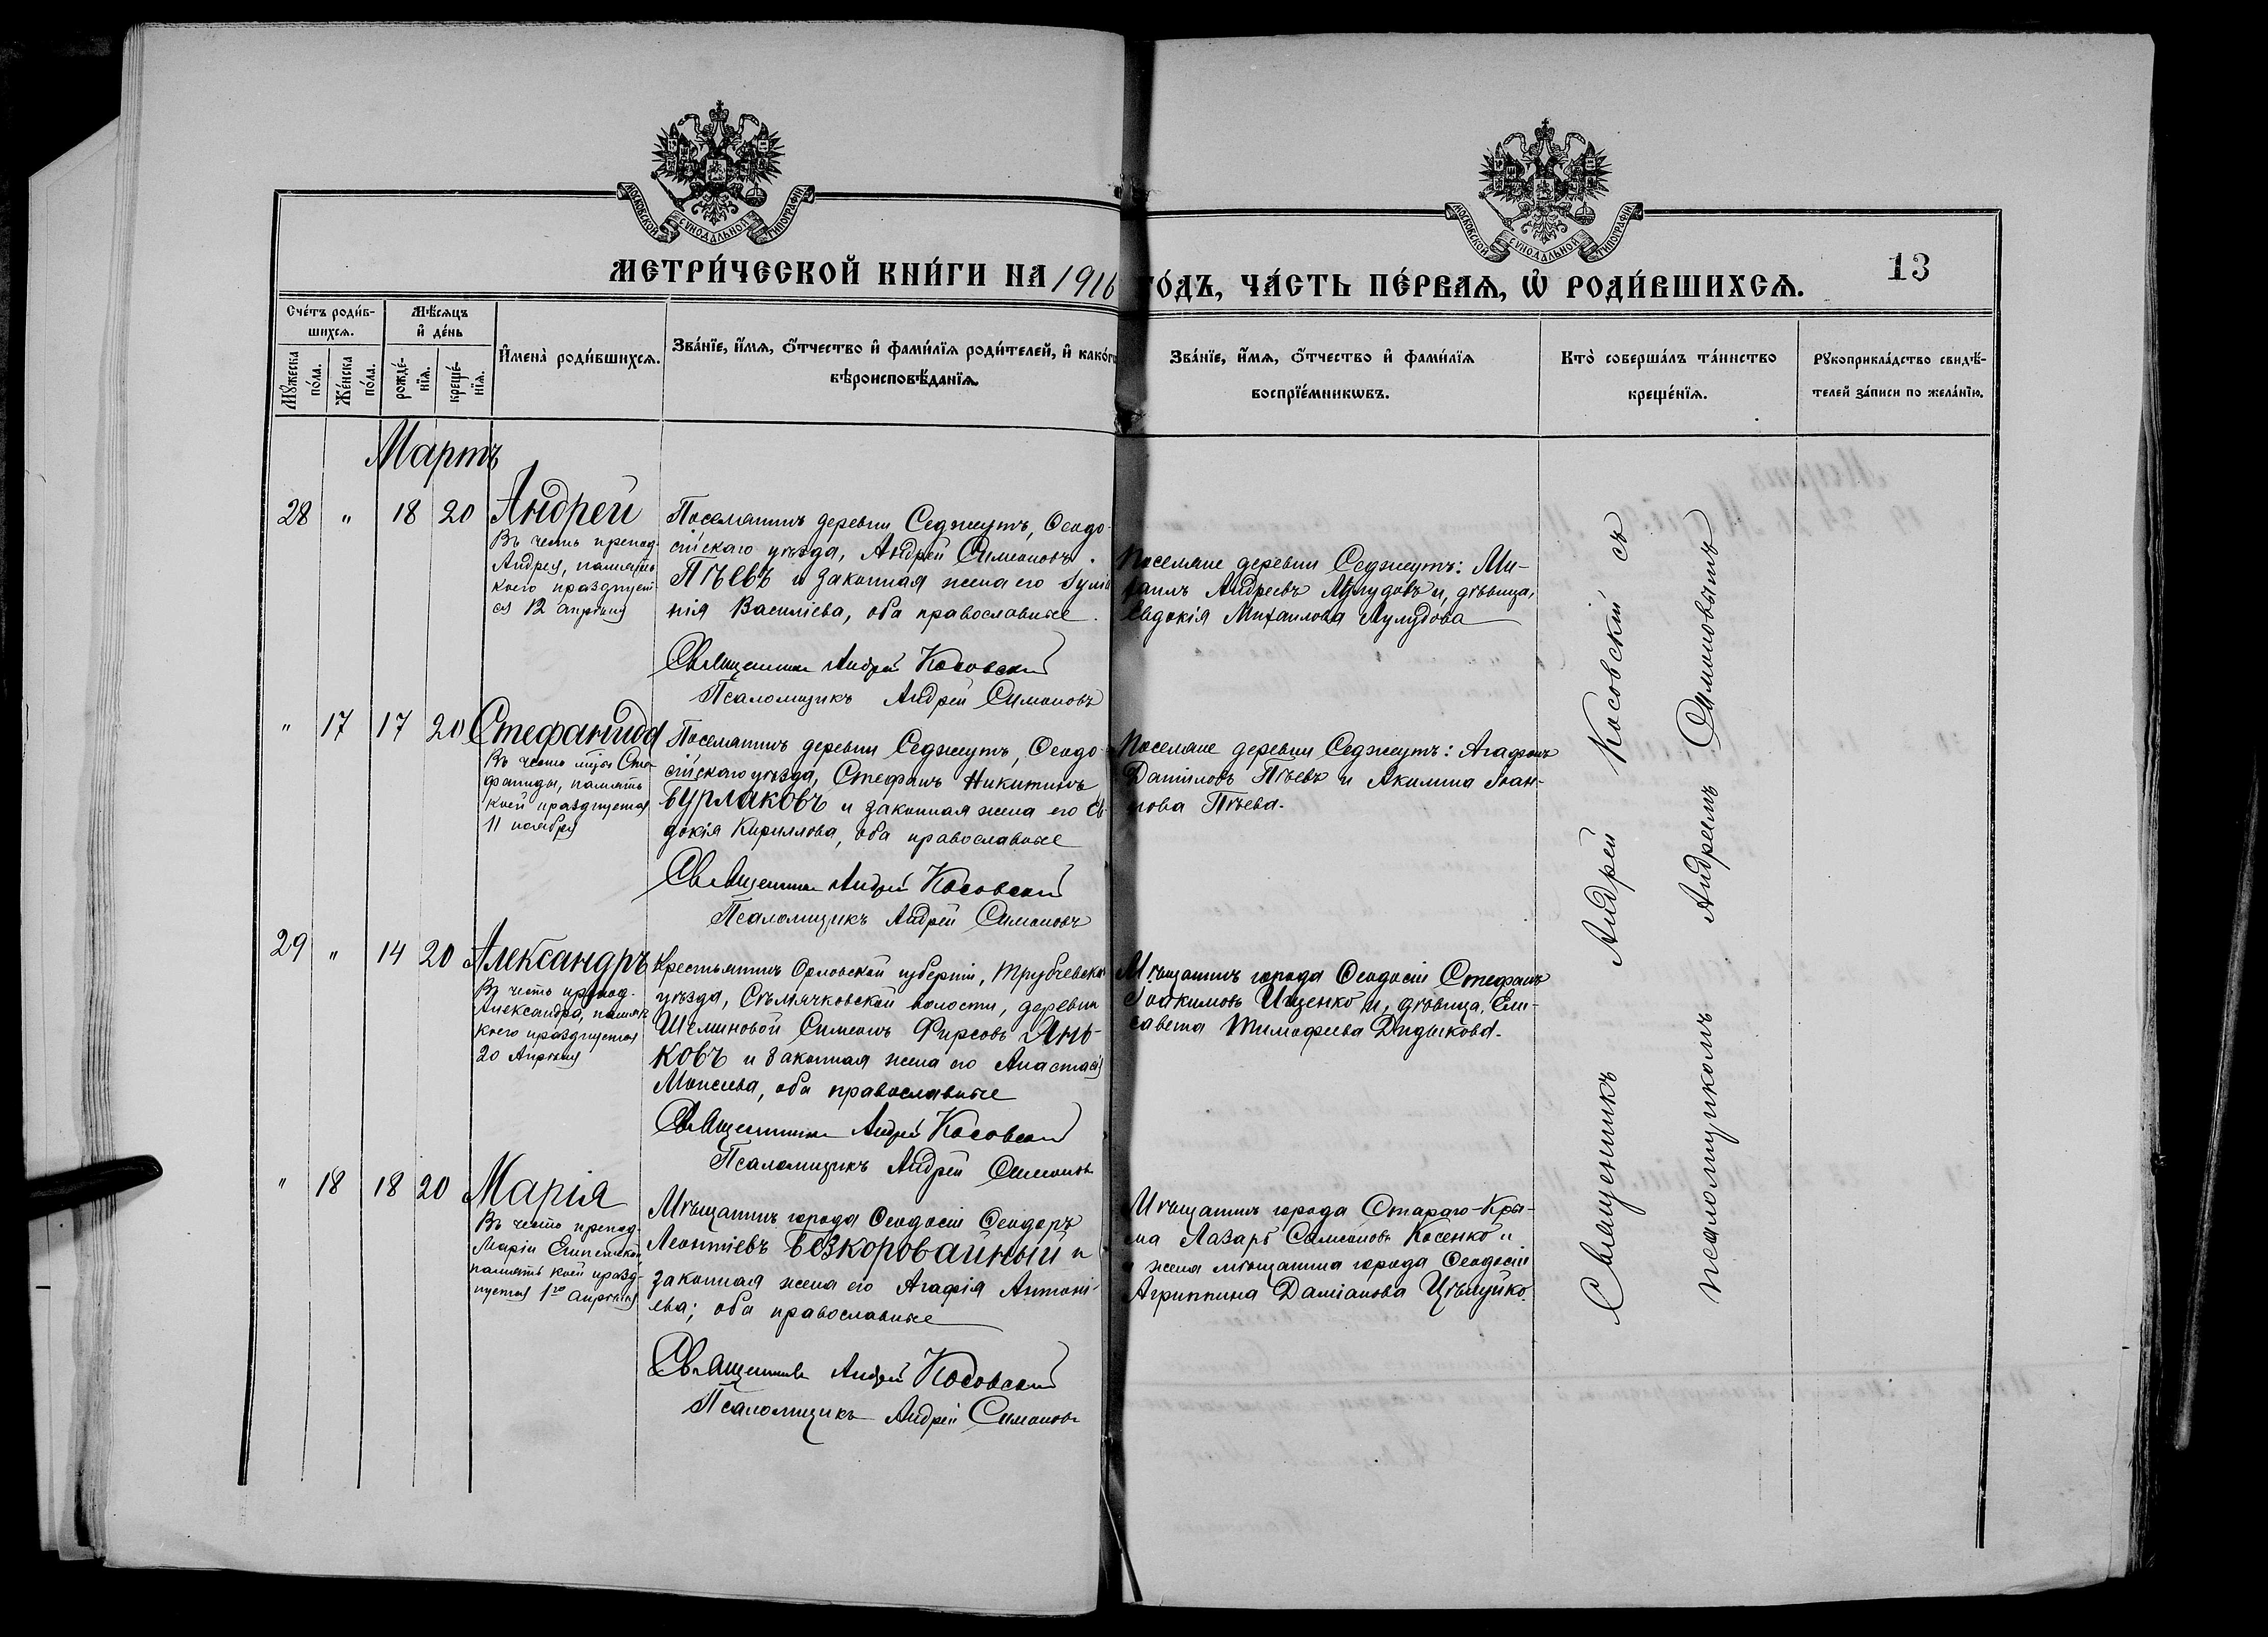 МОСКОВСКОЙ СѴНОДАЛЬНОЙ ТИПОГРАФІИ
МОСКОВСКОЙ СѴНОДАЛЬНОЙ ТИПОГРАФІИ
МЕТРИ́ЧЕСКОЙ КНИ́ГИ НА 1916 ГО́ДЪ, ЧА́СТЬ ПЕ́РВАѦ, Ѡ҆ РОДИ́ВШИХСѦ.
13
Сче́тъ роди́в-
шихсѧ.
Мѣ́сѧцъ
и҆ де́нь
Мꙋ́жеска
по́ла.
Же́нска
по́ла.
рожде́-
нїѧ.
креще́-
нїѧ.
И҆мена̀ роди́вшихсѧ.
Зва́нїе, и҆́мѧ, ѻ҆́тчество и҆ фами́лїѧ роди́телей, и҆ како́гѡ
вѣроисповѣ́данїѧ.
Зва́нїе, и҆́мѧ, ѻ҆́тчество и҆ фами́лїѧ
воспрїе́мникѡвъ.
Кто̀ соверша́лъ та́инство
креще́нїѧ.
Рꙋкоприкла́дство свидѣ́-
телей за́писи по жела́нїю.
Мартъ
28 " 18 20 Андрей
Въ честь препод.
Андрея, память
коего празднует-
ся 12 апрѣля
Поселянинъ деревни Седжеутъ, Ѳеодо-
сійскаго уѣзда, Андрей Симеоновъ
Пѣевъ и законная жена его Іулiа
нія Василіева, оба православные
Священникъ Андрей Косовский
Псаломщикъ Андрей Симоновъ
Поселяне деревни Седжеутъ: Ми-
хаилъ Андреевъ и, дѣвица,
Евдокія Михаилова
" 17 17 20 Стефанида
Въ честь мцы Сте-
фаниды, память
коей празднуется
11 ноября
Поселянинъ деревни Седжеутъ, Ѳеодо-
сійскаго уѣзда, Стефанъ Никитинъ
Бурлаковъ и законная жена его Ев-
докія Кириллова, оба православные
Священникъ Андрей Косовский
Псаломщикъ Андрей Симоновъ
Поселяне деревни Седжеутъ: Агафонъ
Даніиловъ Пѣевъ и Акилина Іоан-
нова Пѣева.
29 " 14 20 Александръ
Въ честь препод.
Александра, память
коего празднуется
20 Апрѣля
Крестьянинъ Орловской губерніи, Трубчевскаго
уѣзда, Сѣмячковской волости, деревни
Шеминовой Симеонъ Фирсовъ Янь-
ковъ и законная жена его Анастасія
Моисеева, оба православные
Священникъ Андрей Косовский
Псаломщикъ Андрей Симоновъ
Мѣщанинъ города Ѳеодосіи Стефанъ
Іоакимовъ Ищенко и, дѣвица, Ели-
савета Тимофеева Дидыкова.
" 18 18 20 Марія
Въ честь препод.
Маріи Египетской,
память коей празд-
нуется 1го апрѣля
Мѣщанинъ города Ѳеодосіи Ѳеодоръ
Леонтіевъ Безкоровайный и
законная жена его Агафія Антоні-
ева; оба православные
Священникъ Андрей Косовский
Псаломщикъ Андрей Симоновъ
Мѣщанинъ города Стараго-Кры-
ма Лазарь Самсоновъ Косенко и
жена мѣщанина города Ѳеодосіи
Агриппина Даміанова
Священникъ Андрей Косовскій съ
псаломщикомъ Андреемъ Симоновымъ